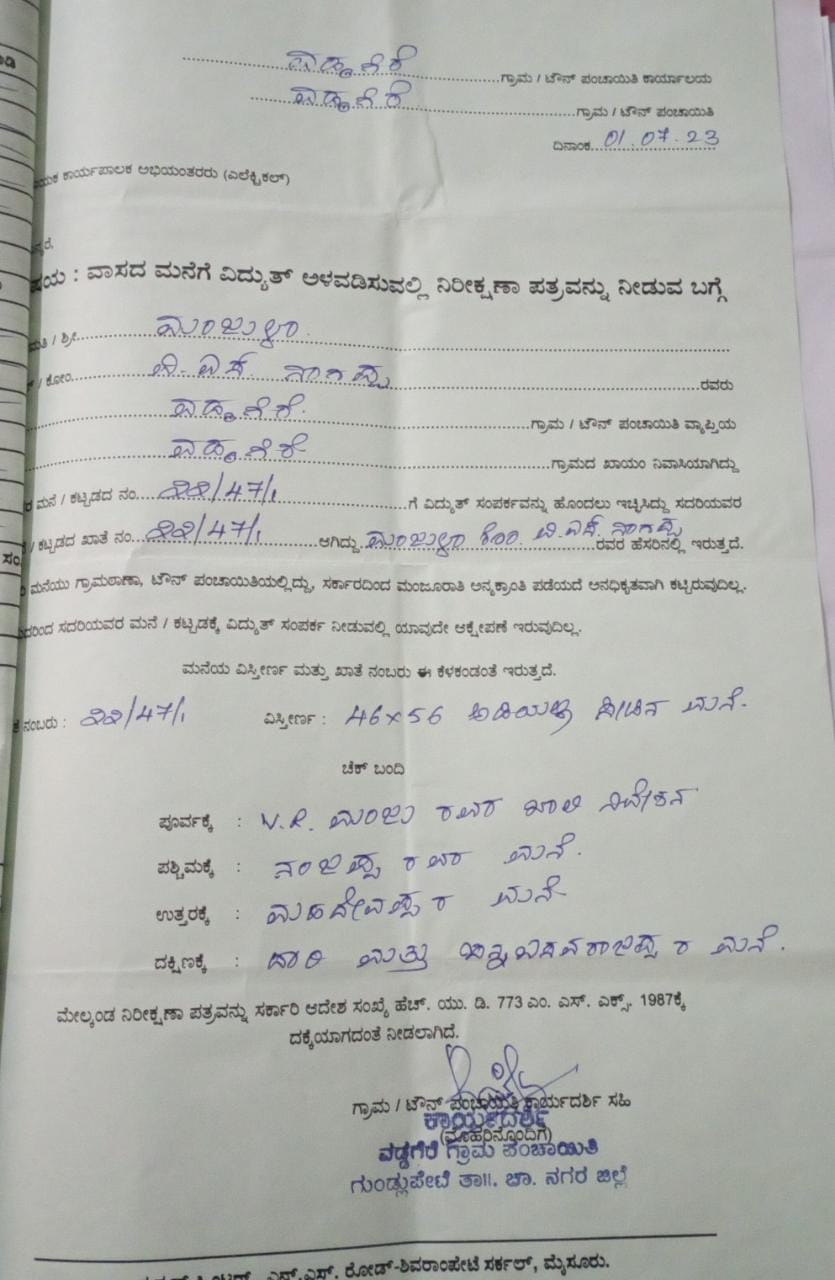 ವಡ್ಡಗೆರೆ ಗ್ರಾಮ / ಟೌನ್ ಪಂಚಾಯಿತಿ ಕಾರ್ಯಾಲಯ
ವಡ್ಡಗೆರೆ ಗ್ರಾಮ / ಟೌನ್ ಪಂಚಾಯಿತಿ
ದಿನಾಂಕ 01.07.23
ಕಾರ್ಯಪಾಲಕ ಅಭಿಯಂತರರು (ಎಲೆಕ್ಟ್ರಿಕಲ್)
: ವಾಸದ ಮನೆಗೆ ವಿದ್ಯುತ್ ಅಳವಡಿಸುವಲ್ಲಿ ನಿರೀಕ್ಷಣಾ ಪತ್ರವನ್ನು ನೀಡುವ ಬಗ್ಗೆ
/ ಶ್ರೀ ಮಂಜುಳಾ
/ ಕೋಂ ವಿ.ಎಸ್. ನಾಗಪ್ಪ ರವರು
ವಡ್ಡಗೆರೆ. ಗ್ರಾಮ / ಟೌನ್ ಪಂಚಾಯಿತಿ ವ್ಯಾಪ್ತಿಯ
ವಡ್ಡಗೆರೆ ಗ್ರಾಮದ ಖಾಯಂ ನಿವಾಸಿಯಾಗಿದ್ದು
ಮನೆ / ಕಟ್ಟಡದ ನಂ. 22/47/1 ಗೆ ವಿದ್ಯುತ್ ಸಂಪರ್ಕವನ್ನು ಹೊಂದಲು ಇಚ್ಛಿಸಿದ್ದು ಸದರಿಯವರ
/ ಕಟ್ಟಡದ ಖಾತೆ ನಂ. 22/47/1 ಆಗಿದ್ದು ಮಂಜುಳಾ ಕೋಂ ವಿ.ಎಸ್. ನಾಗಪ್ಪ ರವರ ಹೆಸರಿನಲ್ಲಿ ಇರುತ್ತದೆ.
ಮನೆಯು ಗ್ರಾಮಠಾಣಾ, ಟೌನ್ ಪಂಚಾಯಿತಿಯಲ್ಲಿದ್ದು, ಸರ್ಕಾರದಿಂದ ಮಂಜೂರಾತಿ ಅನ್ಯಕ್ರಾಂತಿ ಪಡೆಯದೆ ಅನಧಿಕೃತವಾಗಿ ಕಟ್ಟಿರುವುದಿಲ್ಲ.
ಸದರಿಯವರ ಮನೆ / ಕಟ್ಟಡಕ್ಕೆ ವಿದ್ಯುತ್ ಸಂಪರ್ಕ ನೀಡುವಲ್ಲಿ ಯಾವುದೇ ಆಕ್ಷೇಪಣೆ ಇರುವುದಿಲ್ಲ.
ಮನೆಯ ವಿಸ್ತೀರ್ಣ ಮತ್ತು ಖಾತೆ ನಂಬರು ಈ ಕೆಳಕಂಡಂತೆ ಇರುತ್ತದೆ.
ನಂಬರು : 22/47/1 ವಿಸ್ತೀರ್ಣ : 46×56 ಅಡಿಯುಳ್ಳ ಹೀಟಿನ ಮನೆ.
ಚೆಕ್ ಬಂದಿ
ಪೂರ್ವಕ್ಕೆ : V.R. ಮಂಜು ರವರ ಖಾಲಿ ನಿವೇಶನ
ಪಶ್ಚಿಮಕ್ಕೆ : ನಂಜಪ್ಪ ರವರ ಮನೆ.
ಉತ್ತರಕ್ಕೆ : ಮಹದೇವಪ್ಪರ ಮನೆ
ದಕ್ಷಿಣಕ್ಕೆ : ದಾರಿ ಮತ್ತು ಚಿನ್ನಬಸವರಾಜಪ್ಪ ರ ಮನೆ.
ಮೇಲ್ಕಂಡ ನಿರೀಕ್ಷಣಾ ಪತ್ರವನ್ನು ಸರ್ಕಾರಿ ಆದೇಶ ಸಂಖ್ಯೆ ಹೆಚ್. ಯು. ಡಿ. 773 ಎಂ. ಎಸ್. ಎಕ್ಸ್. 1987ಕ್ಕೆ
ದಕ್ಕೆಯಾಗದಂತೆ ನೀಡಲಾಗಿದೆ.
ಗ್ರಾಮ / ಟೌನ್ ಪಂಚಾಯಿತಿ ಕಾರ್ಯದರ್ಶಿ ಸಹಿ
ಕಾರ್ಯದರ್ಶಿ
(ಮೊಹರಿನೊಂದಿಗೆ)
ವಡ್ಡಗೆರೆ ಗ್ರಾಮ ಪಂಚಾಯಿತಿ
ಗುಂಡ್ಲುಪೇಟೆ ತಾ॥. ಚಾ. ನಗರ ಜಿಲ್ಲೆ
ಎನ್.ಎಸ್. ರೋಡ್-ಶಿವರಾಂಪೇಟೆ ಸರ್ಕಲ್, ಮೈಸೂರು.